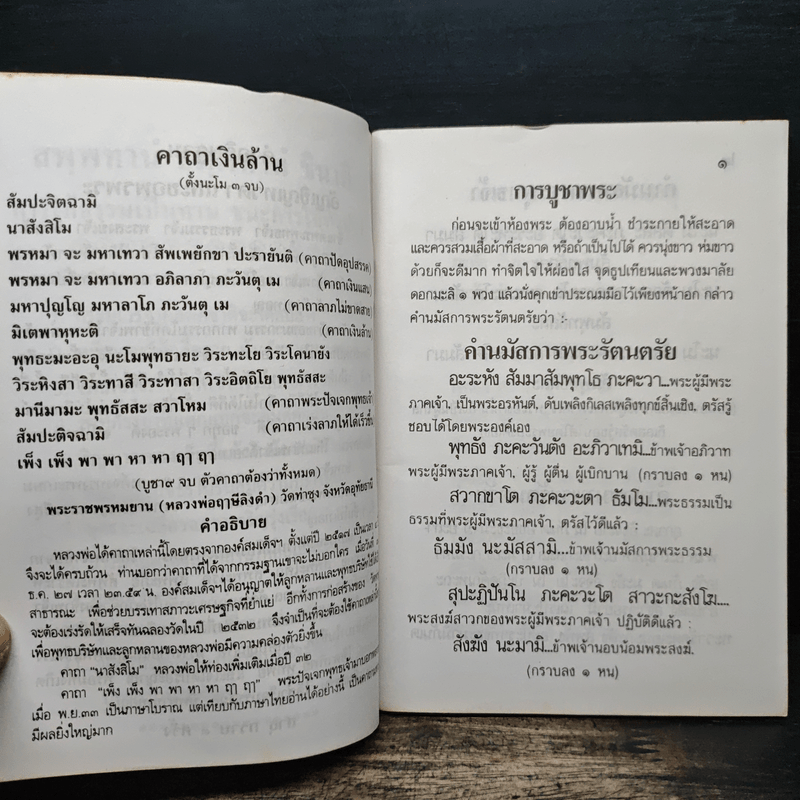 คาถาเงินล้าน
(ตั้งนะโม ๓ จบ)
สัมปะจิตฉามิ
นาสังสิโม
พรหมา จะ มหาเทวา สัพเพยักขา ปะรายันติ (คาถาปัดอุปสรรค)
พรหมา จะ มหาเทวา อภิลาภา ภะวันตุ เม (คาถาเงินแสน)
มหาปุญโญ มหาลาโภ ภะวันตุ เม (คาถาลาภไม่ขาดสาย)
มิเตพาหุหะติ (คาถาเงินล้าน
พุทธะมะอะอุ นะโมพุทธายะ วิระทะโย วิระโคนายัง
วิระหิงสา วิระทาสี วิระทาสา วิระอิตถิโย พุทธัสสะ
มานีมามะ พุทธัสสะ สวาโหม (คาถาพระปัจเจกพุทธเจ้า
สัมปะติจฉามิ (คาถาเร่งลาภให้ได้เร็วขึ้น
เพ็ง เพ็ง พา พา หา หา ฤๅ ฤๅ
(บูชา๙ จบ ตัวคาถาต้องว่าทั้งหมด)
พระราชพรหมยาน (หลวงพ่อฤๅษีลิงดำ) วัดท่าซุง จังหวัดอุทัยธานี
คำอธิบาย
หลวงพ่อได้คาถาเหล่านี้โดยตรงจากองค์สมเด็จฯ ตั้งแต่ปี ๒๕๑๗ เป็นเวลา
จึงจะได้ครบถ้วน ท่านบอกว่าคาถาที่ได้จากกรรมฐานเขาจะไม่บอกใคร เมื่อวันที่
ธ.ค. ๒๗ เวลา ๒๓.๕๙ น. องค์สมเด็จฯได้อนุญาตให้ลูกหลานและพุทธบริษัทใช้
สาธารณะ เพื่อช่วยบรรเทาสภาวะเศรษฐกิจที่ย่ำแย่ อีกทั้งการก่อสร้างของ
จะต้องเร่งรัดให้เสร็จทันฉลองวัดในปี ๒๕๓๒ จึงจำเป็นที่จะต้องใช้คาถา
เพื่อพุทธบริษัทและลูกหลานของหลวงพ่อมีความคล่องตัวยิ่งขึ้น
คาถา "นาสังสิโม" หลวงพ่อให้ท่องเพิ่มเติมเมื่อปี ๓๒
คาถา "เพ็ง เพ็ง พา พา หา หา ฤๅ ฤๅ" พระปัจเจกพุทธเจ้ามาบอก
เมื่อ พ.ย.๓๓ เป็นภาษาโบราณ แต่เทียบกับภาษาไทยอ่านได้อย่างนี้ เป็นคาถา
มีผลยิ่งใหญ่มาก
๑
การบูชาพระ
ก่อนจะเข้าห้องพระ ต้องอาบน้ำ ชำระกายให้สะอาด
และควรสวมเสื้อผ้าที่สะอาด หรือถ้าเป็นไปได้ ควรนุ่งขาว ห่มขาว
ด้วยก็จะดีมาก ทำจิตใจให้ผ่องใส จุดธูปเทียนและพวงมาลัย
ดอกมะลิ ๑ พวง แล้วนั่งคุกเข่าประณมมือไว้เพียงหน้าอก กล่าว
คำนมัสการพระรัตนตรัยว่า :-
คำนมัสการพระรัตนตรัย
อะระหัง สัมมาสัมพุทโธ ภะคะวา...พระผู้มีพระ
ภาคเจ้า, เป็นพระอรหันต์, ดับเพลิงกิเลสเพลิงทุกข์สิ้นเชิง, ตรัสรู้
ชอบได้โดยพระองค์เอง
พุทธัง ภะคะวันตัง อะภิวาเทมิ...ข้าพเจ้าอภิวาท
พระผู้มีพระภาคเจ้า, ผู้รู้ ผู้ตื่น ผู้เบิกบาน (กราบลง ๑ หน)
สวากขาโต ภะคะวะตา ธัมโม...พระธรรมเป็น
ธรรมที่พระผู้มีพระภาคเจ้า, ตรัสไว้ดีแล้ว :
ธัมมัง นะมัสสามิ...ข้าพเจ้านมัสการพระธรรม
(กราบลง ๑ หน)
สุปะฏิปันโน ภะคะวะโต สาวะกะสังโฆ...
พระสงฆ์สาวกของพระผู้มีพระภาคเจ้า ปฏิบัติดีแล้ว :
สังฆัง นะมามิ...ข้าพเจ้านอบน้อมพระสงฆ์.
(กราบลง ๑ หน)